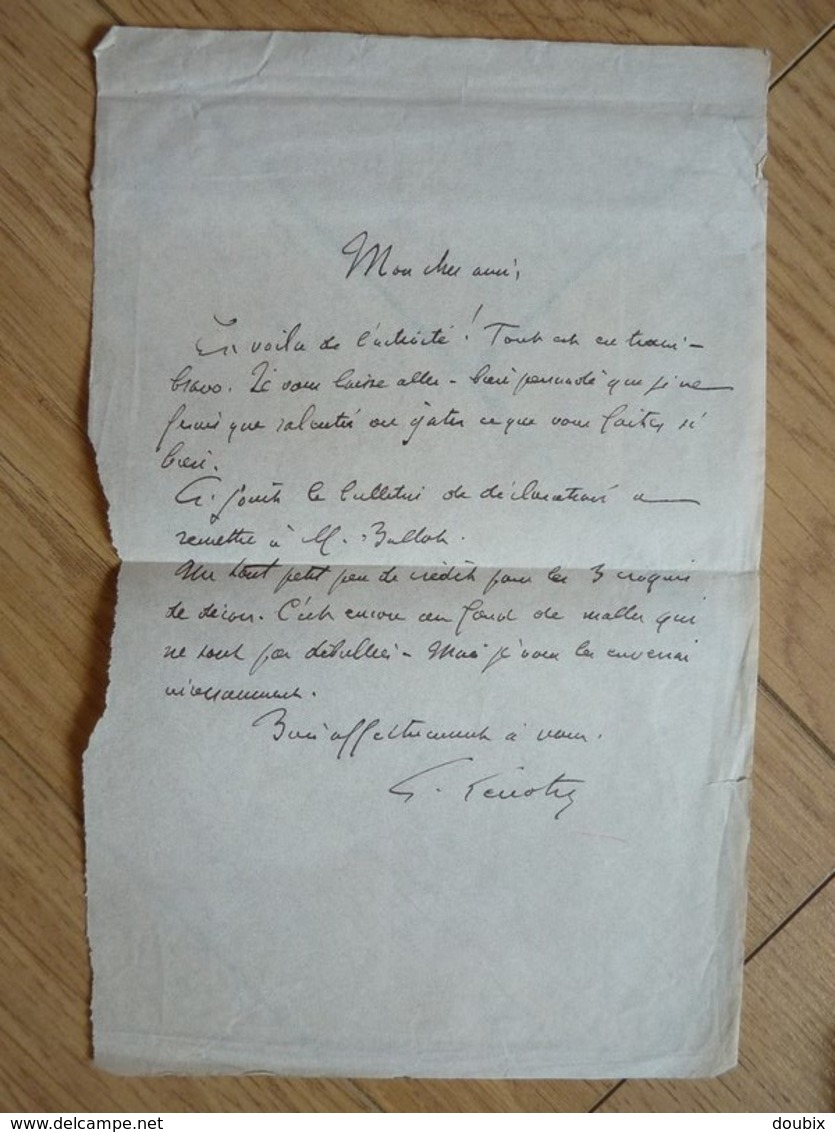 Mon cher ami,
En voilà de l'activité ! Tout est en train -
bravo. Je vous laisse aller - bien persuadé que je ne
ferais que ralentir ou gâter ce que vous faites si
bien.
Ci joint le bulletin de déclaration à
remettre à M.
Un tout petit peu de crédit pour les 3 croquis
de décors. C'est encore au fond de malles qui
ne sont pas déballées - Mais je vous les enverrai
incessamment.
Bien affectueusement à vous.
G. Lenotre
www.delcampe.net
doubix